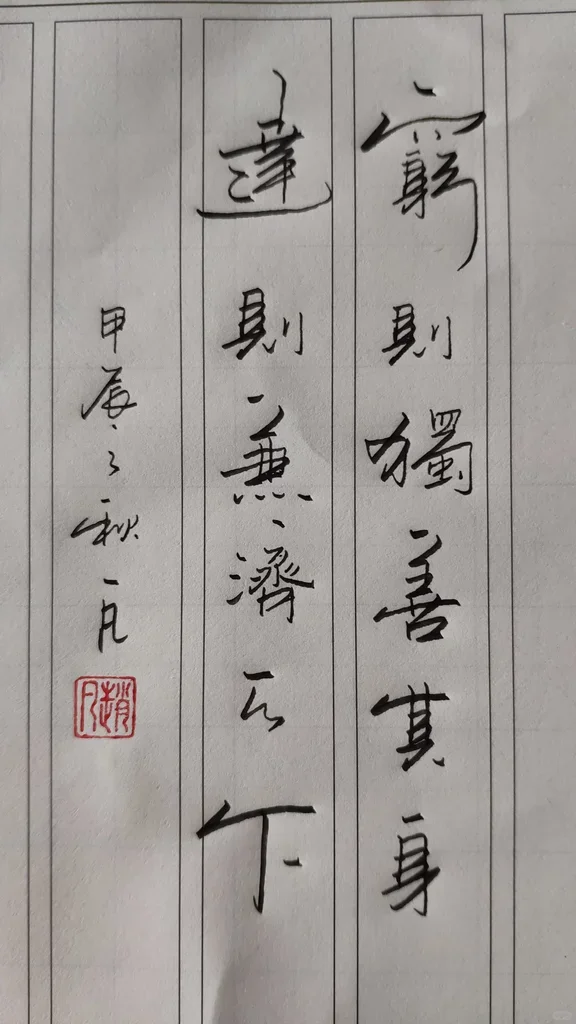 窮則獨善其身
達則兼濟天下
甲辰之秋一凡
趙凡